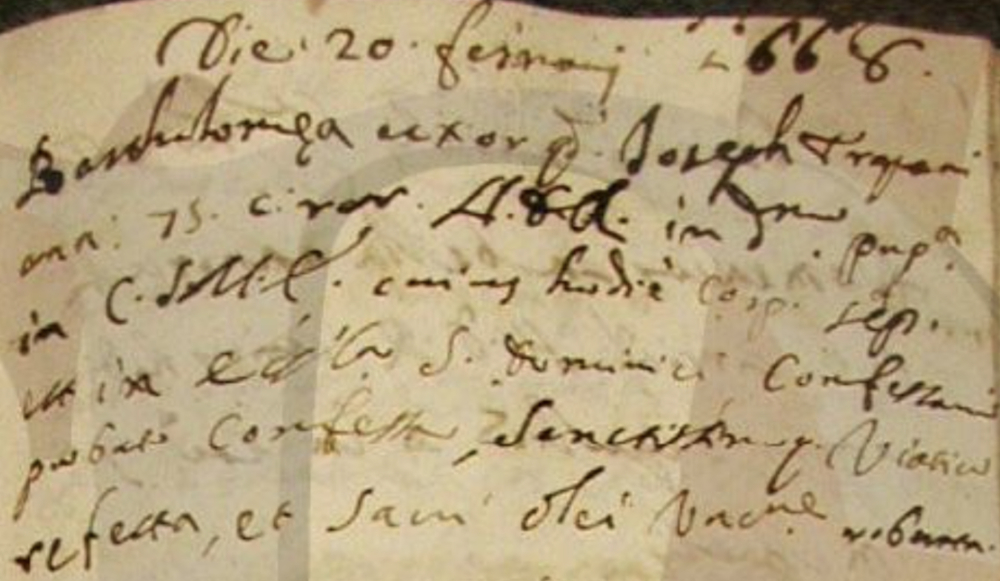 Die 20 ferruarij 1668.
uxor q. Joseph Trapani
ann: 75. circiter in Dno
in C. S.M.E. cuius hodie corp. sep.
est in eccla S. Dominici Confessario
probato Confessa, Sanctissimoq. Viatico
refecta, et sacri olei Unctne roborata.